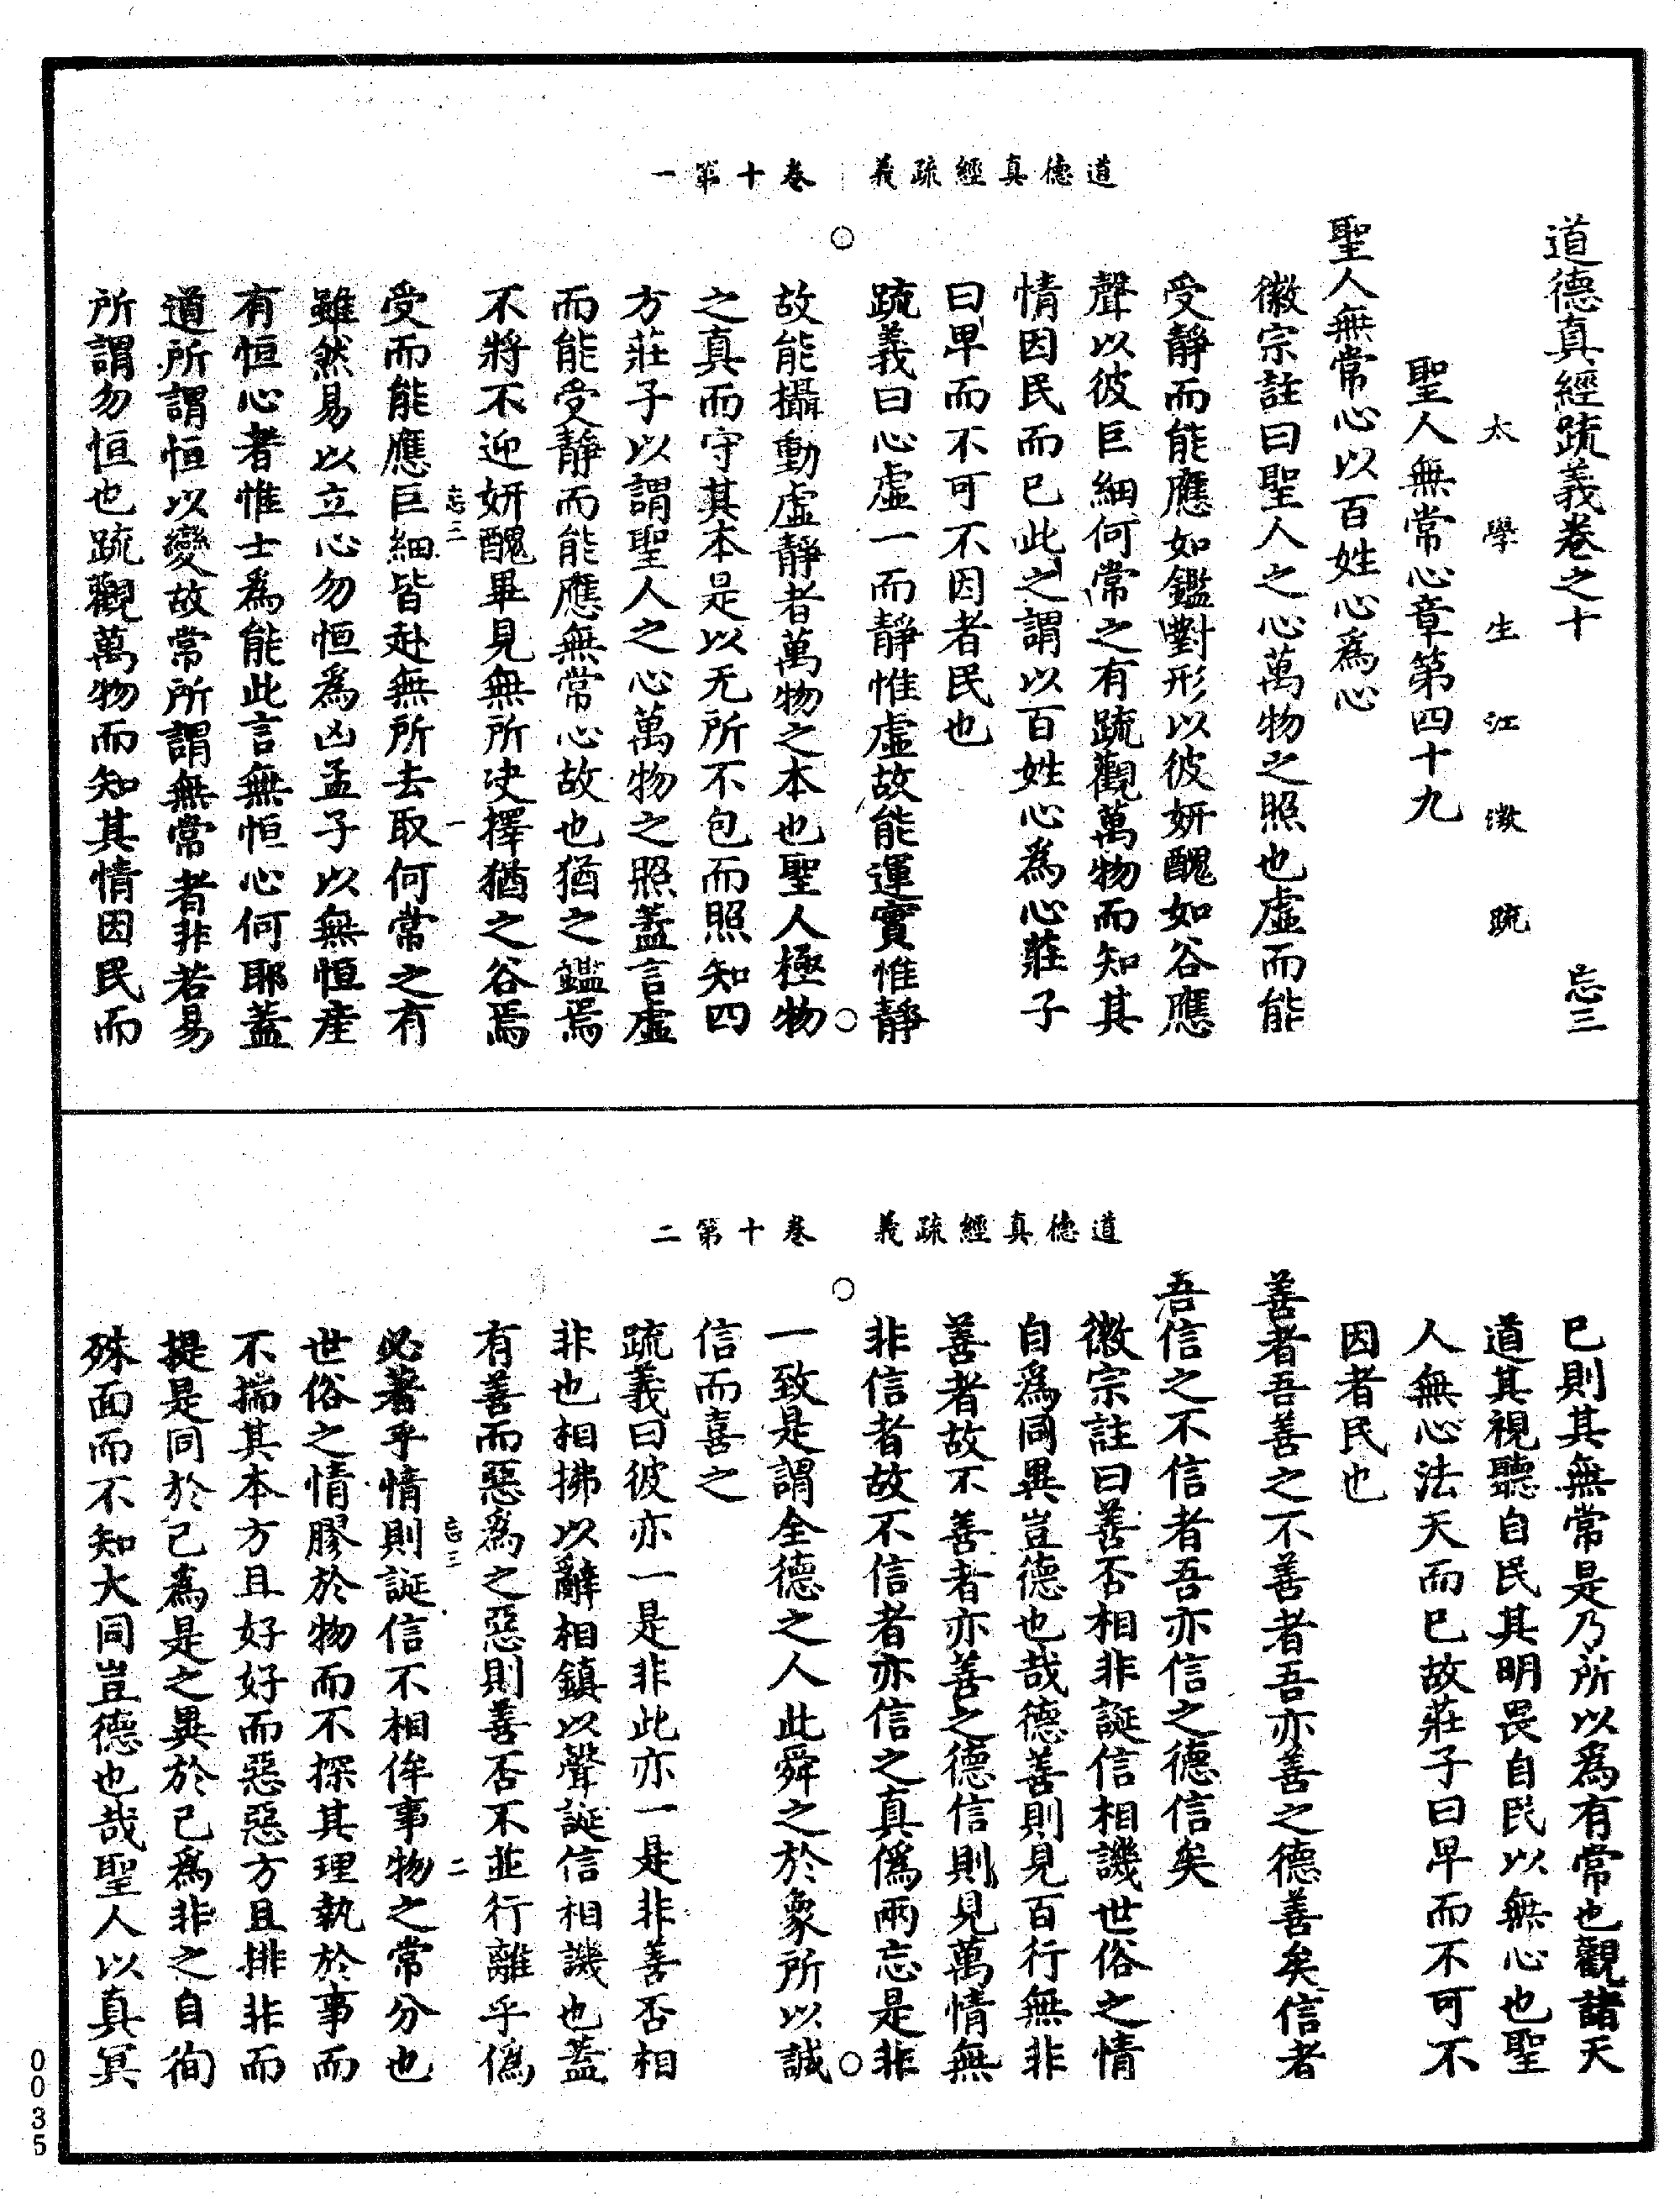 道德真經疏義　卷十第一
道德真經疏義卷之十　忘三
太學生江澂疏
聖人無常心章第四十九
聖人無常心以百姓心爲心
徽宗註曰聖人之心萬物之照也虛而能
受靜而能應如鑑對形以彼妍醜如谷應
聲以彼巨細何常之有䟽觀萬物而知其
情因民而已此之謂以百姓心爲心莊子
曰卑而不可不因者民也
䟽義曰心虛一而靜惟虛故能運實惟靜
故能攝動虛靜者萬物之本也聖人極物
之真而守其本是以无所不包而照知四
方莊子以謂聖人之心萬物之照蓋言虛
而能受靜而能應無常心故也猶之鑑焉
不將不迎妍醜畢見無所決擇猶之谷焉
忘三　一
受而能應巨細皆赴無所去取何常之有
雖然易以立心勿恒爲凶孟子以無恒產
有恒心者惟士爲能此言無恒心何耶蓋
道所謂恒以變故常所謂無常者非若易
所謂勿恒也䟽觀萬物而知其情因民而
道德真經疏義　卷十第二
已則其無常是乃所以爲有常也觀諸天
道其視聽自民其明畏自民以無心也聖
人無心法天而已故莊子曰卑而不可不
因者民也
善者吾善之不善者吾亦善之德善矣信者
吾信之不信者吾亦信之德信矣
徽宗註曰善否相非誕信相譏世俗之情
自爲同異豈德也哉德善則見百行無非
善者故不善者亦善之德信則見萬情無
非信者故不信者亦信之真僞兩忘是非
一致是謂全德之人此舜之於象所以誠
信而喜之
䟽義曰彼亦一是非此亦一是非善否相
非也相拂以辭相鎮以聲誕信相譏也蓋
有善而惡爲之惡則善否不並行離乎僞
忘三　二
必著乎情則誕信不相侔事物之常分也
世俗之情膠於物而不探其理執於事而
不揣其本方且好好而惡惡方且排非而
提是同於己爲是之異於己爲非之自徇
殊面而不知大同豈德也哉聖人以真冥
0035